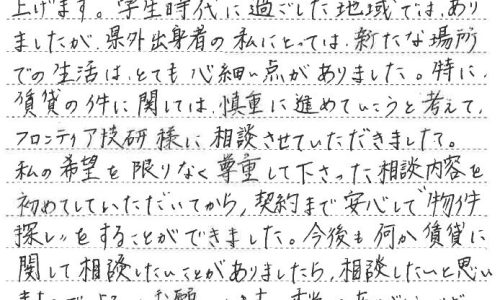 上げます。学生時代に過ごした地域では、あり
ましたが、県外出身者の私にとっては、新たな場所
での生活は、とても心細い点がありました。特に、
賃貸の件に関しては、慎重に進めていこうと考えて、
フロンティア技研様に相談させていただきました。
私の希望を限りなく尊重して下さった相談内容を
初めてしていただいてから、契約まで安心して"物件
探し"をすることができました。今後も何か賃貸に
関して相談したいことがありましたら、相談したいと思い